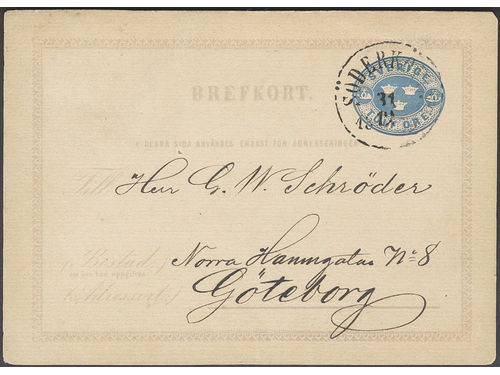 SVERIGE
TOLF ÖRE
SÖDERK
31
12
BREFKORT.
Å DENNA SIDA ANVÄNDES ENDAST FÖR ADRESSERINGEN
Till
Herr G. W. Schröder
Bostad
Norra Hamngatan No 8
Adressort:
Göteborg